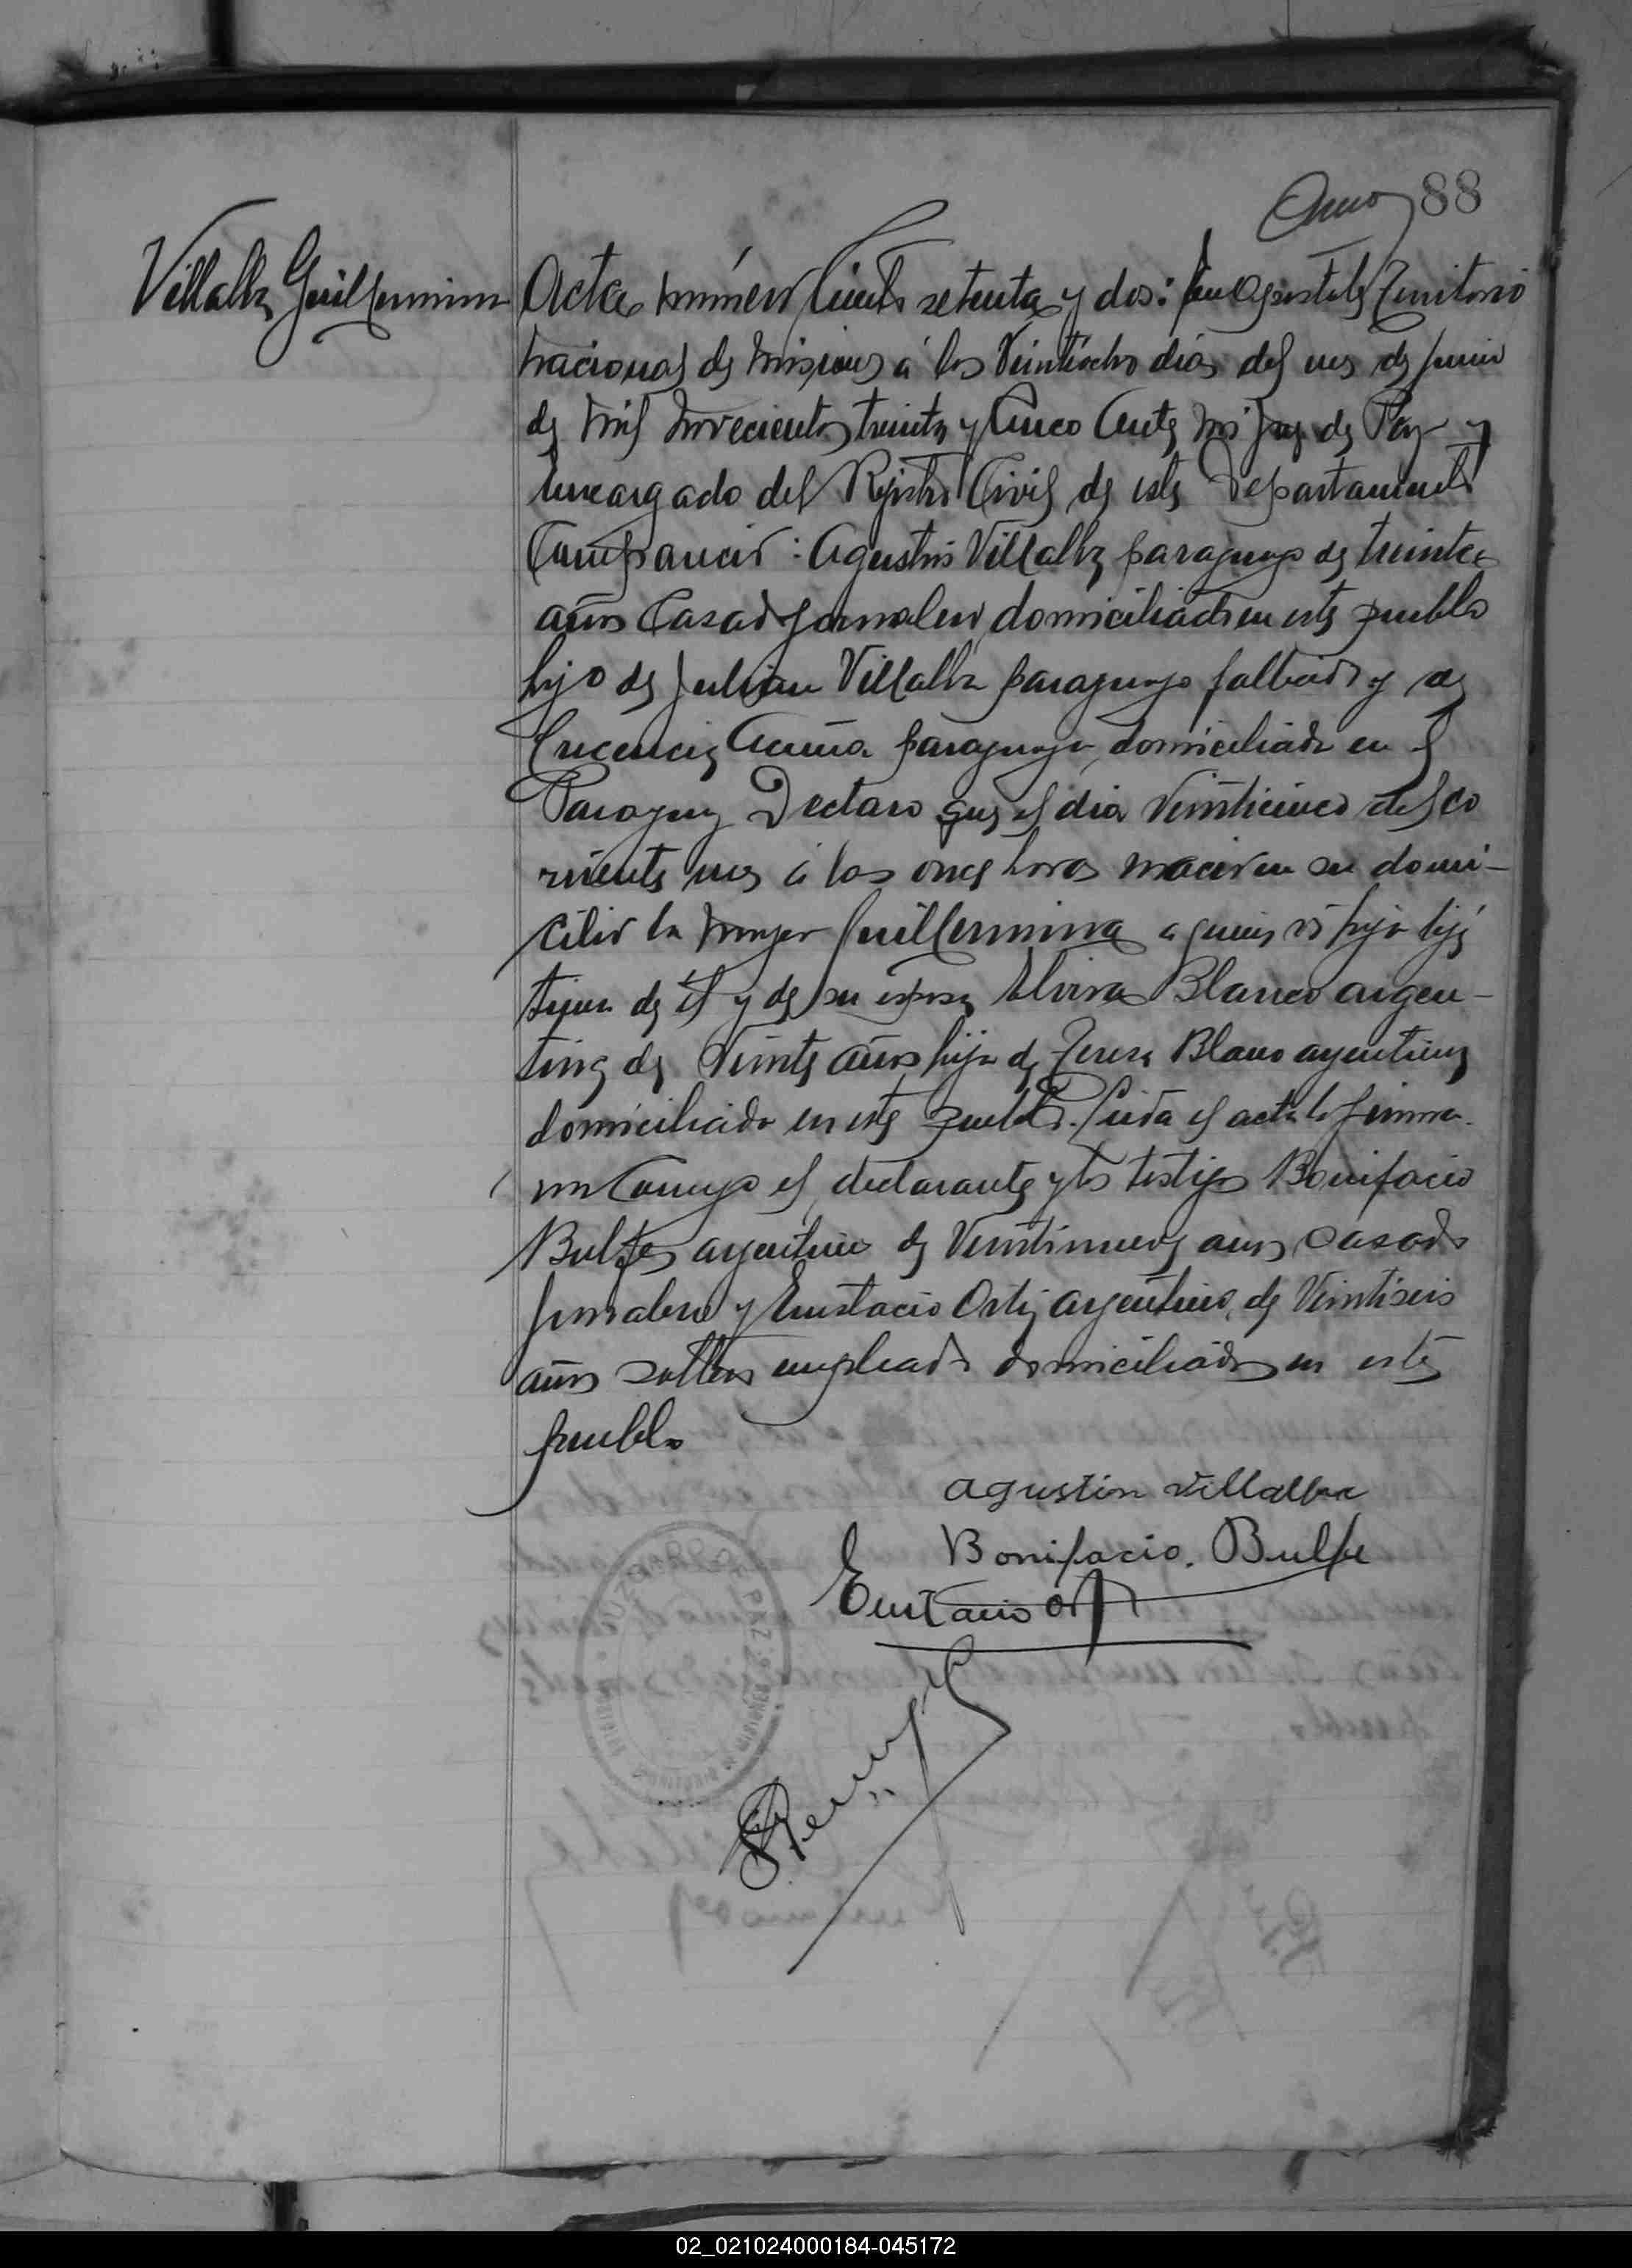 88
Villalba Guillermina
Acta número Ciento setenta y dos: En Apostoles Territorio
nacional de Misiones á los Veintiocho dias del mes de Junio
de mil novecientos treinta y Cinco Ante mi Juez de Paz y
Encargado del Rejistro Civil de este Departamento
Comparecio: Agustin Villalba paraguayo de treinta
años Casado Jornalero, domiciliado en este pueblo
hijo de Julian Villalba paraguayo fallecido y de
Crecencia Acuña paraguaya, domiciliada en el
Paraguay Declaro que el dia Veinticinco del co
rriente mes á las once horas nacio en su domi-
cilio la mujer Guillermina a quien es hija lijí
tima de él y de su esposa Elvira Blanco argen-
tina de Veinte años hija de Teresa Blanco argentina
domiciliada en este pueblo. Leida el acta la firma-
ron Conmigo el declarante y los testigos Bonifacio
Bulfe argentino de Veintinueve años, casado
Jornalero y Eustacio Ortiz argentino, de Veintiseis
años soltero empleado domiciliados en este
pueblo
Agustin Villalba
Bonifacio. Bulfe
Eustacio Ort
02_021024000184-045172